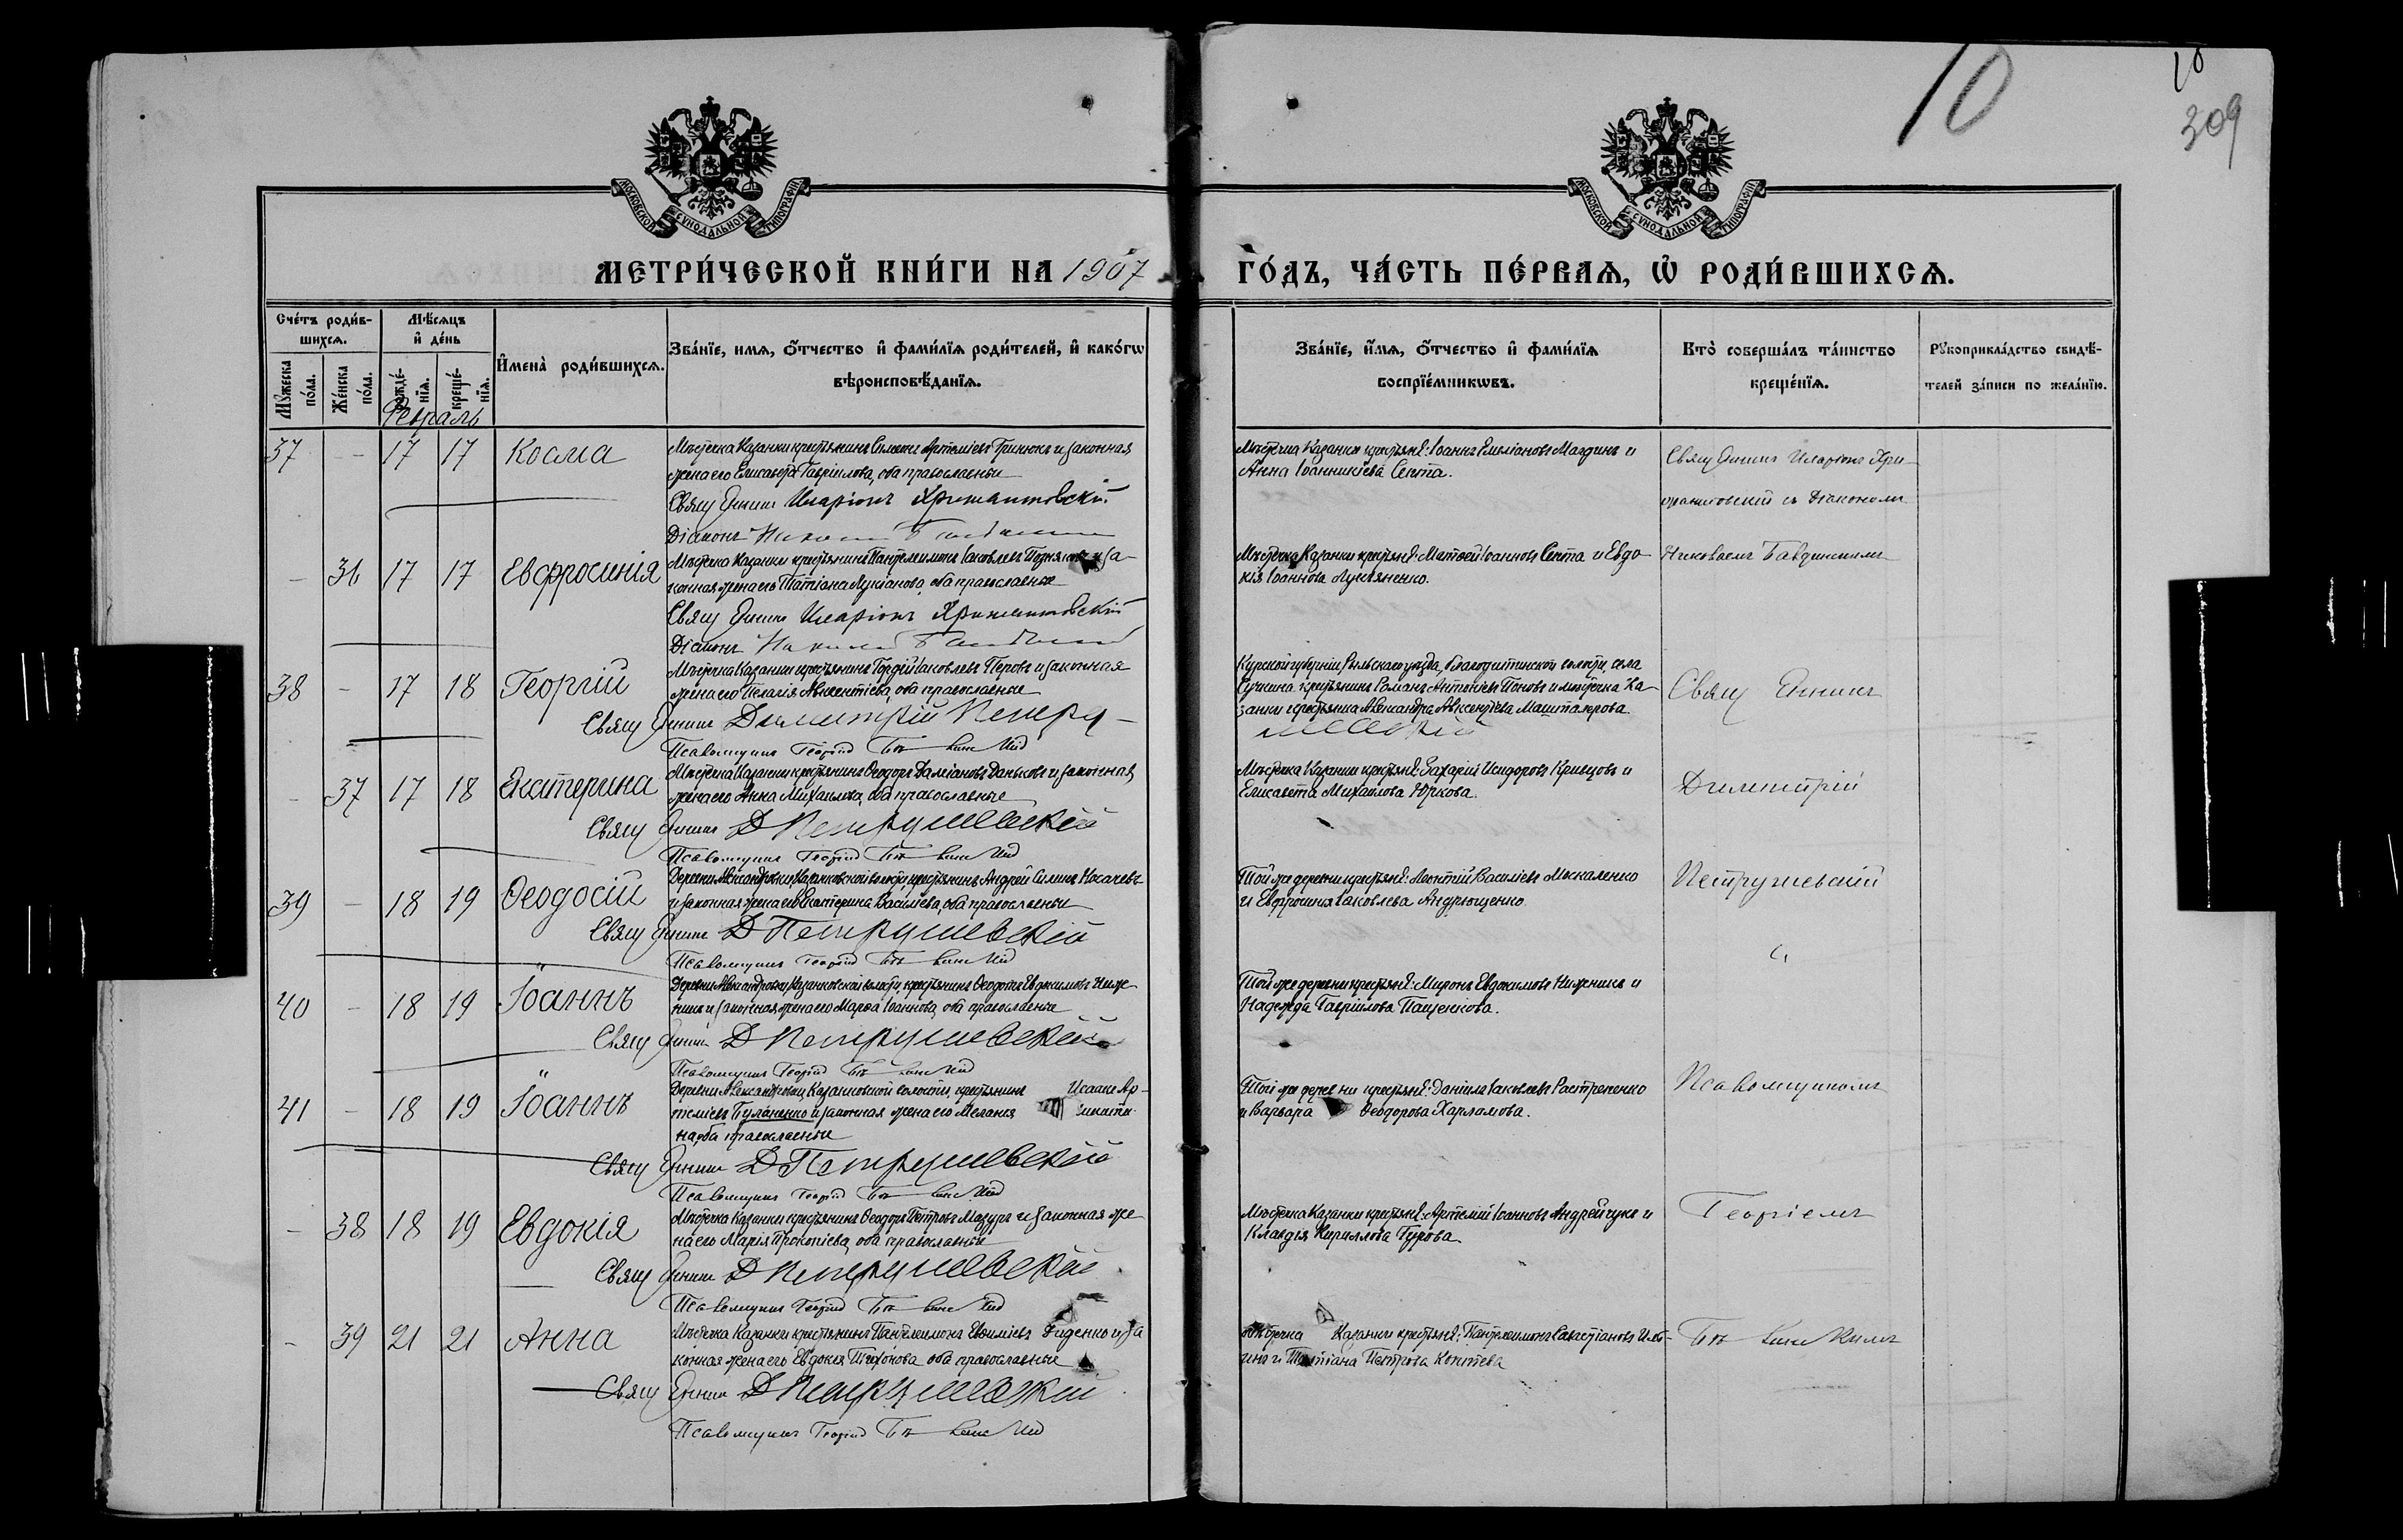 10
10
309
МОСКОВСКОЙ СУНОДАЛЬНОЙ ТИПОГРАФІИ
МОСКОВСКОЙ СУНОДАЛЬНОЙ ТИПОГРАФІИ
МЕТРИ́ЧЕСКОЙ КНИ́ГИ НА 1907
ГО́ДЪ, ЧА́СТЬ ПЕ́РВАѦ, Ѡ҆ РОДИ́ВШИХСѦ.
Сче́тъ роди́в-
шихсѧ.
Мѣ́сѧцъ
и҆ де́нь
Мꙋжеска по́ла.
Же́нска по́ла.
рожде́-нїѧ.
креще́-нїѧ.
И҆мена̀ роди́вшихсѧ.
Зва́нїе, имѧ, ѻ҆́тчество и҆ фами́лїѧ роди́телей, и҆ како́гѡ
вѣроисповѣ́данїѧ.
Зва́нїе, и҆́мѧ, ѻ҆́тчество и҆ фами́лїѧ
воспрїе́мникѡвъ.
Кто̀ соверша́лъ та́инство
креще́нїѧ.
Рꙋкоприкла́дство свидѣ́-
телей за́писи по жела́нїю.
Февраль
37 - 17 17 Косма
Мѣстечка Казанки крестьянинъ Симеонъ Артеміевъ Гринюкъ и законная
жена его Елисавета Гавріилова, оба православные
Свящ Иларіонъ Крижановскій
Діаконъ Николай
Мѣстечка Казанки крестьяне: Іоаннъ Емиліановъ Маздинъ и
Анна Іоанникіева Септа.
Свящ Иларіонъ Кри-
жановскій съ Діакономъ
- 36 17 17 Евфросинія
Мѣстечка Казанки крестьянинъ Пантелеимонъ Іаковлевъ и за-
конная жена его Татіана Лукіанова, оба православные
Свящ Иларіонъ Крижановскій
Діаконъ Николай
Мѣстечка Казанки крестьяне: Матѳей Іоанновъ Септа и Евдо-
кія Іоаннова Лукьяненко.
Николаемъ
38 - 17 18 Георгій
Мѣстечка Казанки крестьянинъ Гордій Іаковлевъ Перовъ и законная
жена его Пелагія Авксентіева, оба православные
Свящ Димитрій Петру-
шевскій
Псаломщикъ Георгій
Курской губерніи, Рыльскаго уѣзда, волости, села
Сучкина крестьянинъ Романъ Антоніевъ Поповъ и мѣстечка Ка-
занки крестьянка Александра Авксентіева Машталерова.
Свящ
- 37 17 18 Екатерина
Мѣстечка Казанки крестьянинъ Ѳеодоръ Даміановъ Даньковъ и законная
жена его Анна Михаилова, оба православные
Свящ Д Петрушевскій
Псаломщикъ Георгій
Мѣстечка Казанки крестьяне: Захарій Исидоровъ Кривцовъ и
Елисавета Михаилова Юркова.
Димитрій
39 - 18 19 Ѳеодосій
Деревни Александровки, Казанковской волости, крестьянинъ Андрей Силинъ Носачевъ
и законная жена его Екатерина Василіева, оба православные
Свящ Д Петрушевскій
Псаломщикъ Георгій
Той же деревни крестьяне: Леонтій Василіевъ Москаленко
и Евфросинія Іаковлева Андрющенко
Петрушевскій
съ
40 - 18 19 Іоаннъ
Деревни Александровки, Казанковской волости, крестьянинъ Ѳеодотъ Евдокимовъ Ниже-
никъ и законная жена его Марѳа Іоаннова, оба православные
Свящ Д Петрушевскій
Псаломщикъ Георгій
Той же деревни крестьяне: Миронъ Евдокимовъ Ниженикъ и
Надежда Гавріилова Пащенкова.
41 - 18 19 Іоаннъ
Деревни Александровки, Казанковской волости, крестьянинъ Исаакъ Ар-
теміевъ Гуланенко и законная жена его Меланія Никити-
на, оба православные
Свящ Д Петрушевскій
Псаломщикъ Георгій
Той же деревни крестьяне: Даніилъ Іаковлевъ Растрепенко
и Варвара Ѳеодорова Харламова.
Псаломщикомъ
- 38 18 19 Евдокія
Мѣстечка Казанки крестьянинъ Ѳеодоръ Петровъ Мазуръ и законная же-
на его Марія Прокопіева, оба православные
Свящ Д Петрушевскій
Псаломщикъ Георгій
Мѣстечка Казанки крестьяне: Артемій Іоанновъ Андрейчукъ и
Клавдія Кириллова Гурова.
Георгіемъ
- 39 21 21 Анна
Мѣстечка Казанки крестьянинъ Пантелеимонъ Евѳиміевъ Диденко и за
конная жена его Евдокія Тихонова оба православные
Свящ Д Петрушевскій
Псаломщикъ Георгій
Мѣстечка Казанки крестьяне: Пантелеимонъ Севастіановъ
и Татіана Петрова Коптева